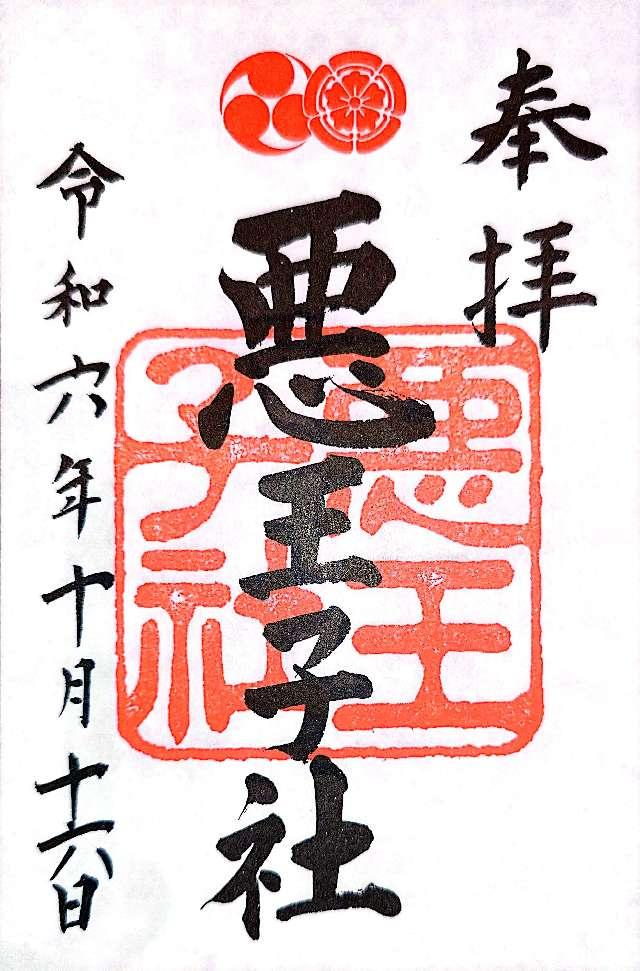 奉拝
悪王子社
悪王子社
令和六年十月十六日